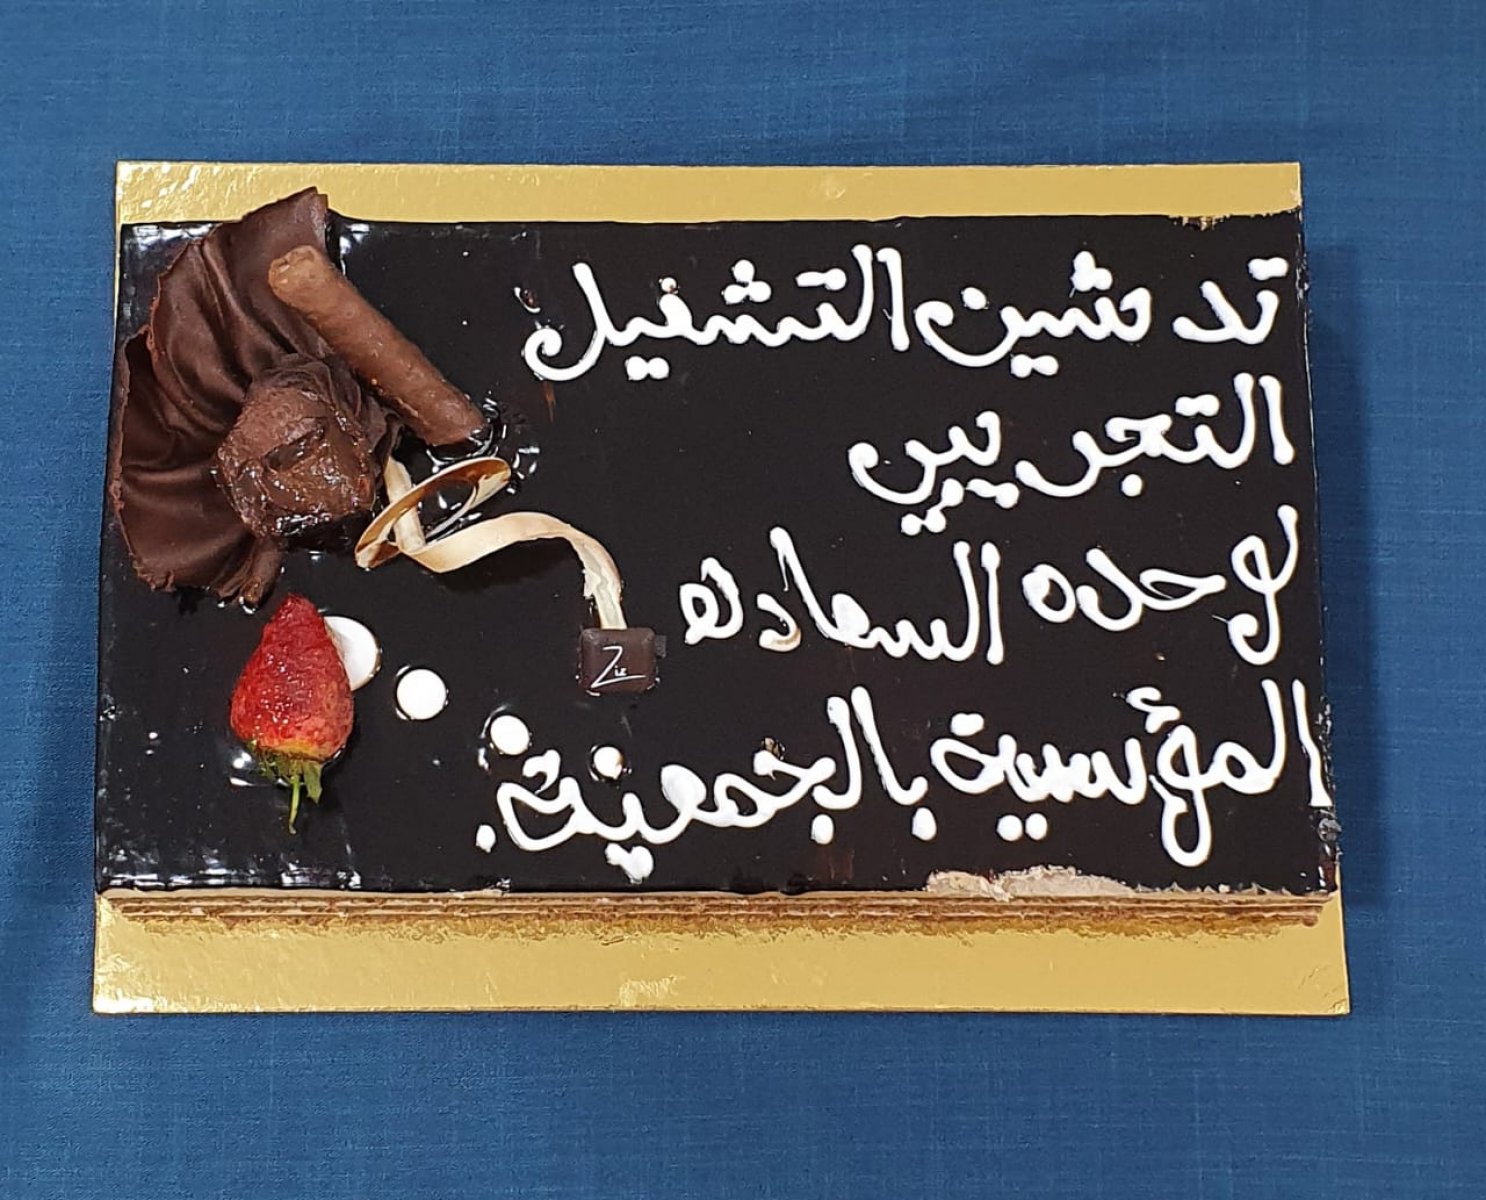 تدشين التشغيل
التجريبي
لوحده السعاده
المؤسسية بالجمعية.
Ziz